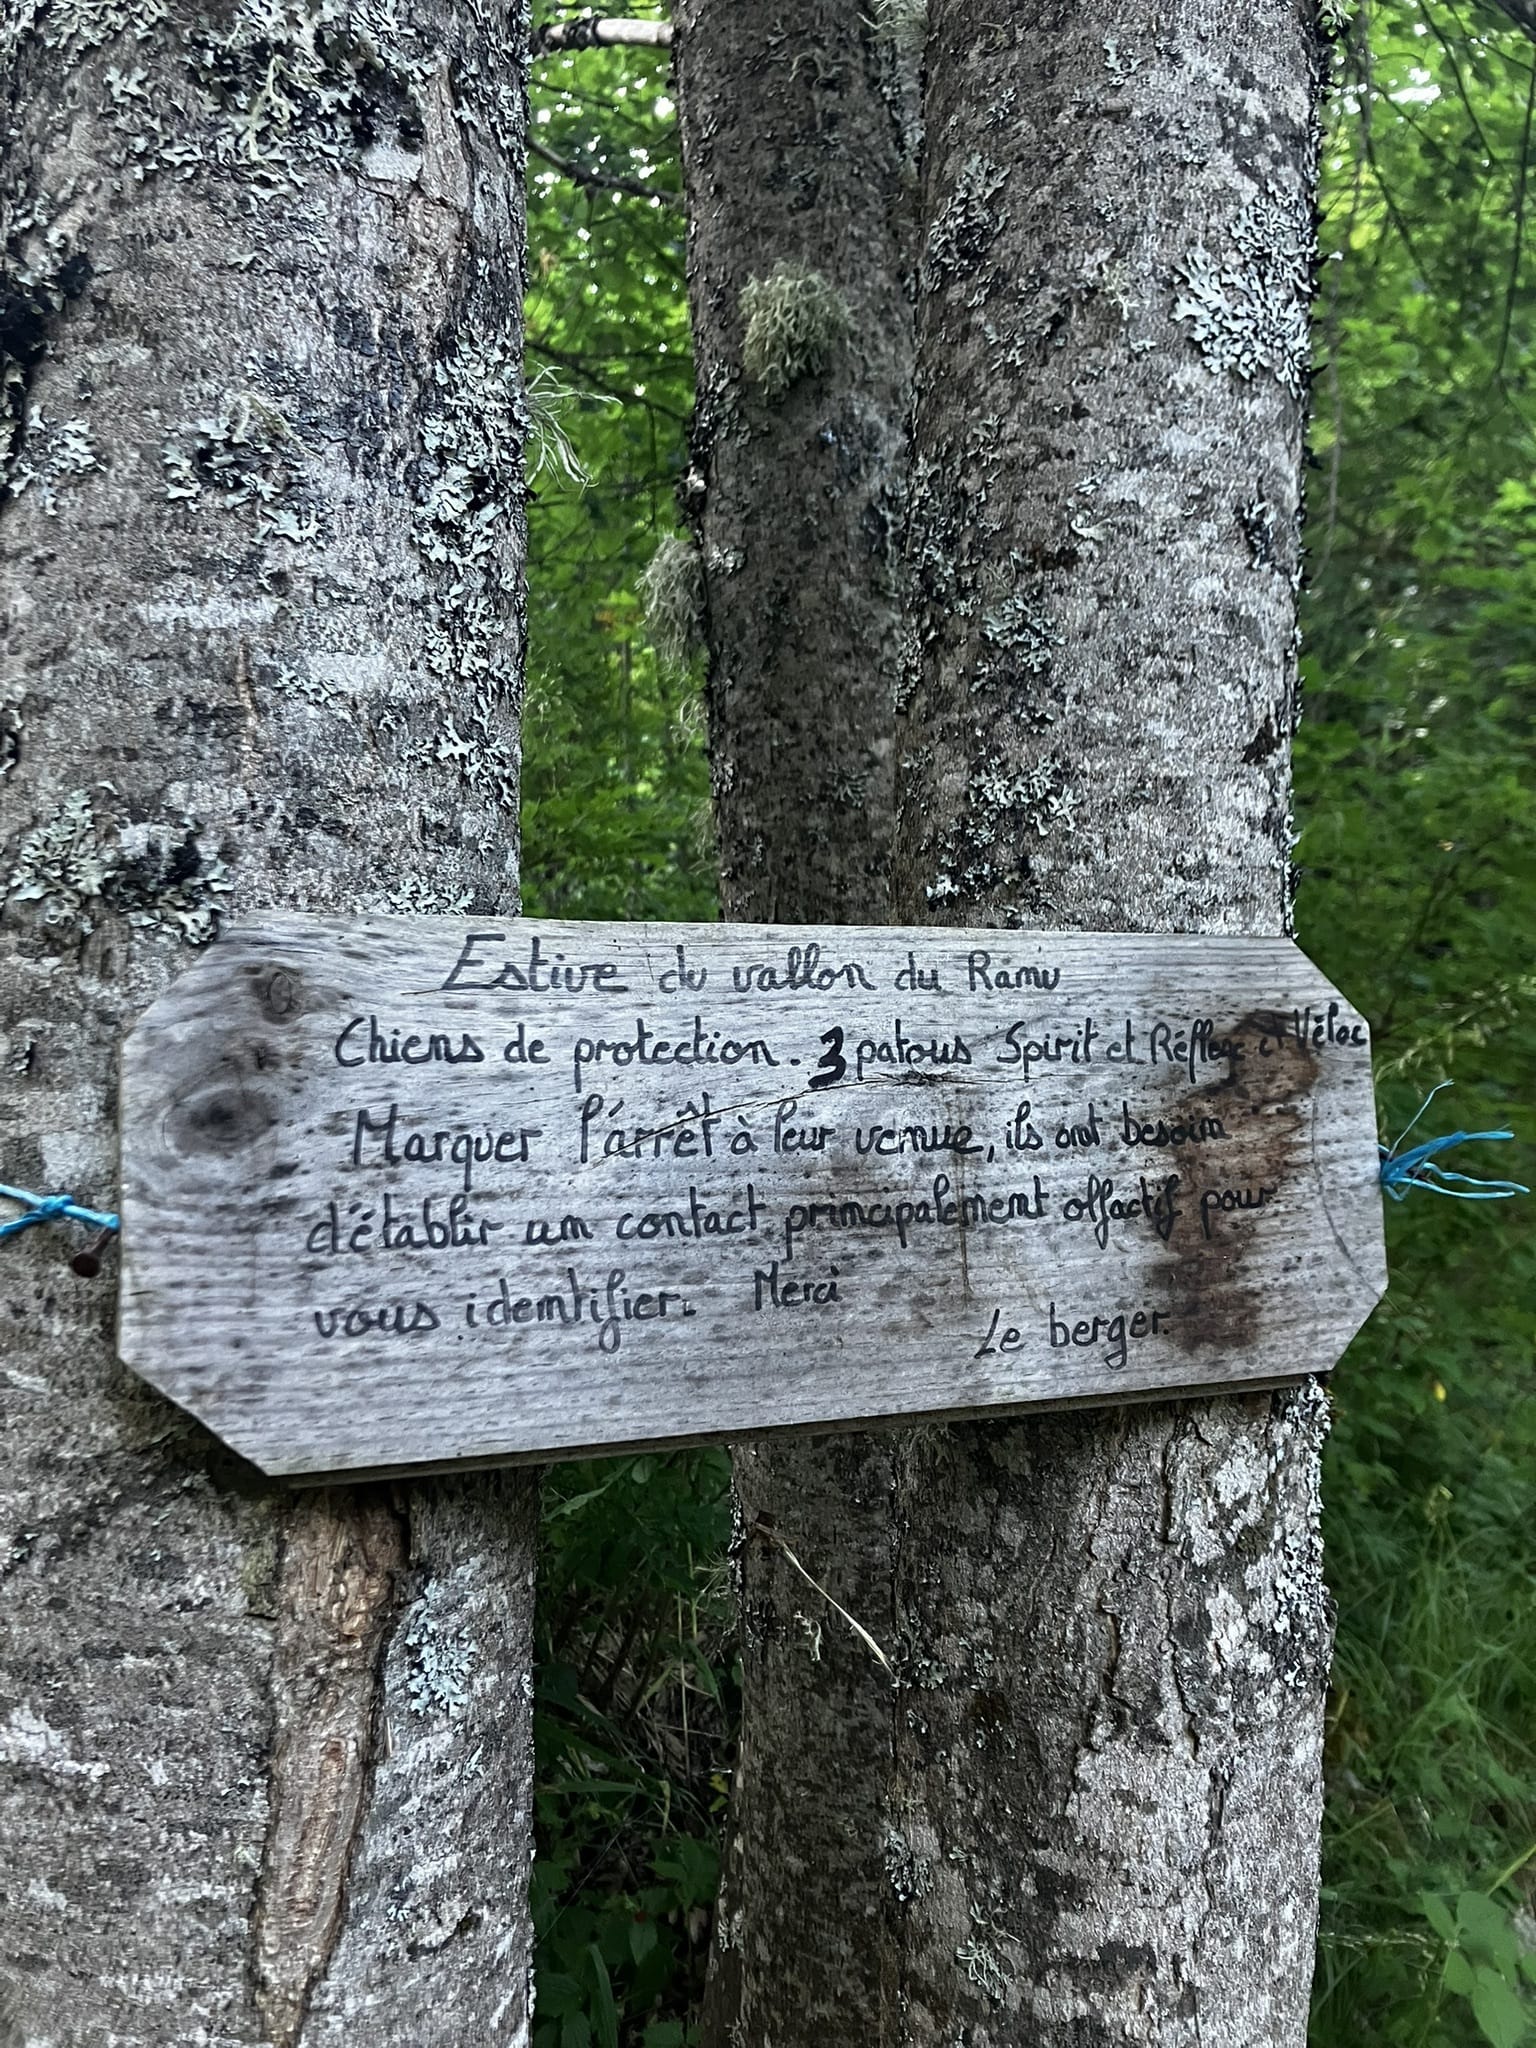 Estive du vallon du Ramu
Chiens de protection. 3 patous Spirit et Réflexe et Véloc
Marquer l'arrêt à leur venue, ils ont besoin
d'établir un contact principalement olfactif pour
vous identifier. Merci
Le berger.